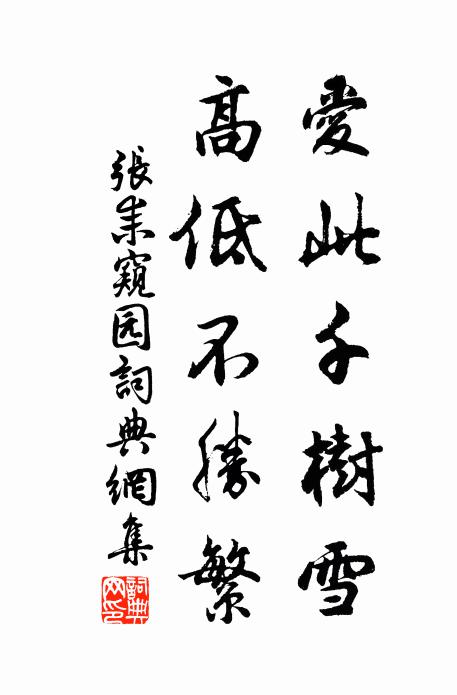 愛此千樹雪
高低不勝繁
張耒窺园詞典網集
詞典